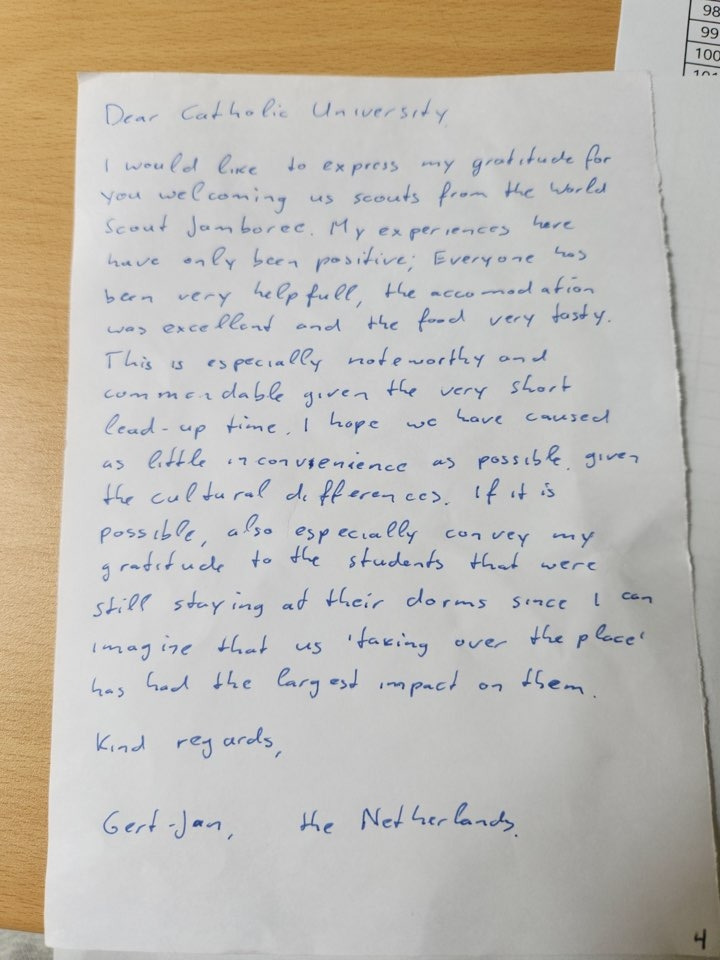 98
99
100
Dear Catholic University,
I would like to express my gratitude for
you welcoming us scouts from the World
Scout Jamboree. My experiences here
have only been positive; Everyone has
been very helpfull, the accomodation
was excellent and the food very tasty.
This is especially noteworthy and
commendable given the very short
lead-up time. I hope we have caused
as little inconvenience as possible, given
the cultural differences. If it is
possible, also especially convey my
gratitude to the students that were
still staying at their dorms since I can
imagine that us 'taking over the place'
has had the largest impact on them.
Kind regards,
Gert-Jan, the Netherlands.
4